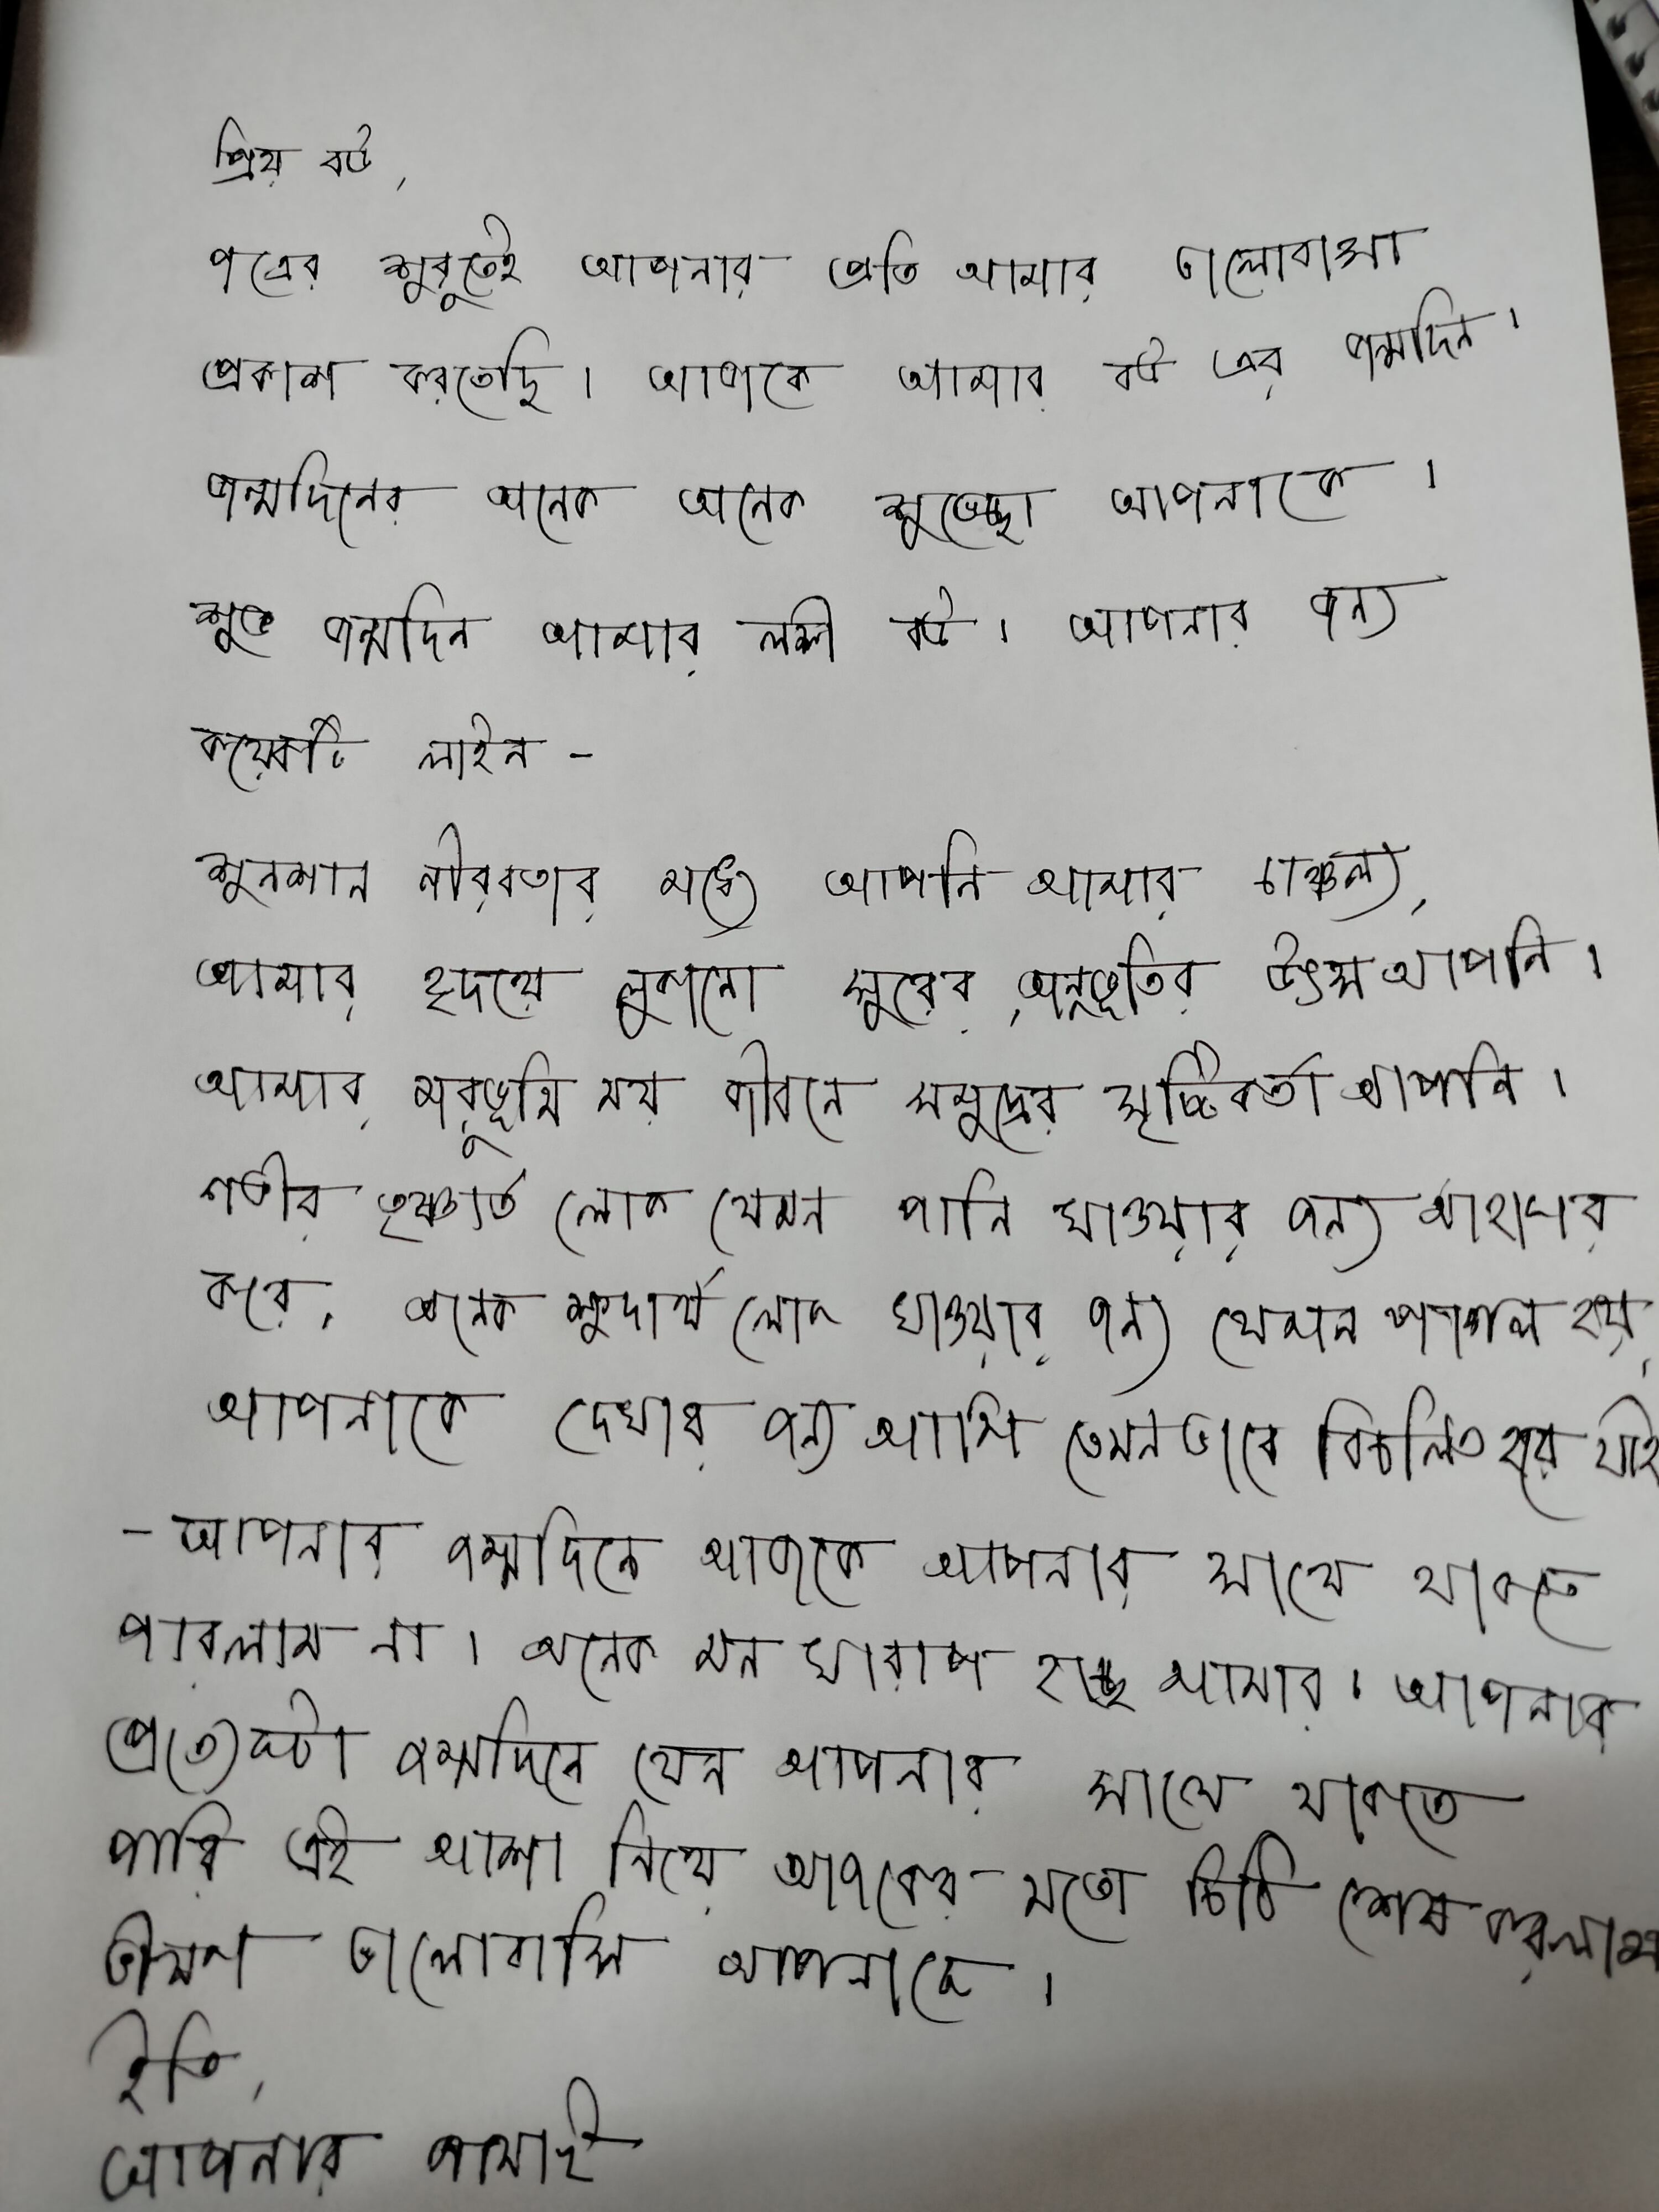 প্রিয় বউ,
পত্রের শুরুতেই আপনার প্রতি আমার ভালোবাসা
প্রকাশ করতেছি। আজকে আমার বউ এর জন্মদিন।
জন্মদিনের অনেক অনেক শুভেচ্ছা আপনাকে।
শুভ জন্মদিন আমার লক্ষী বউ। আপনার জন্য
কয়েকটি লাইন -
শুনশান নীরবতার মধ্যে আপনি আমার চাঞ্চল্য,
আমার হৃদয়ে লুকানো সুরের অনুভূতির উৎস আপনি।
আমার মরুভূমি ময় জীবনে সমুদ্রের সৃষ্টিকর্তা আপনি।
গভীর তৃষ্ণার্ত লোক যেমন পানি খাওয়ার জন্য
করে, অনেক ক্ষুদার্থ লোক খাওয়ার জন্য যেমন পাগল হয়,
আপনাকে দেখার জন্য আমি তেমনভাবে বিচলিত হয়ে যাই
- আপনার জন্মদিনে আজকে আপনার সাথে থাকতে
পারলাম না। অনেক মন খারাপ হচ্ছে আমার। আপনার
প্রত্যেকটা জন্মদিনে যেন আপনার সাথে থাকতে
পারি এই আশা নিয়ে আজকের মতো চিঠি শেষ করলাম
ভীষণ ভালোবাসি আপনাকে।
ইতি,
আপনার জামাই